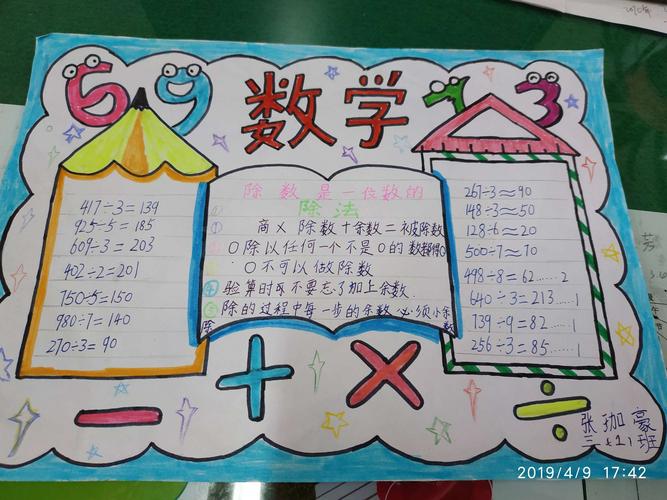 5 9 数学 7 3
417÷3=139
925÷5=185
609÷3=203
402÷2=201
750÷5=150
980÷7=140
270÷3=90
除数是一位数的
除法
① 商×除数+余数=被除数
0除以任何一个不是0的数都得0
0不可以做除数
验算时不要忘了加上余数
除的过程中每一步的余数必须小余
除数
267÷3≈90
148÷3≈50
128÷6≈20
500÷7≈70
498÷8=62……2
640÷3=213……1
739÷9=82……1
256÷3=85……1
张珈豪
三(1)班
2019/4/9 17:42